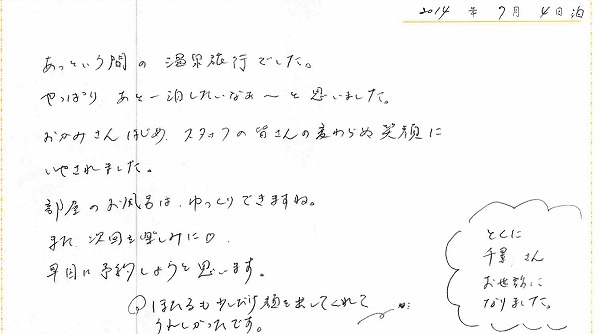 2014 年 7月 4日泊
あっという間の 温泉旅行でした。
やっぱり あと一泊したいなぁ〜と思いました。
おかみさんはじめ、スタッフの皆さんの変わらぬ笑顔に
いやされました。
部屋のお風呂は、ゆっくりできますね。
また、次回を楽しみに
早目に予約しようと思います。
ほたるも少しだけ顔を出してくれて
うれしかったです。
とくに
千景さん
お世話に
なりました。